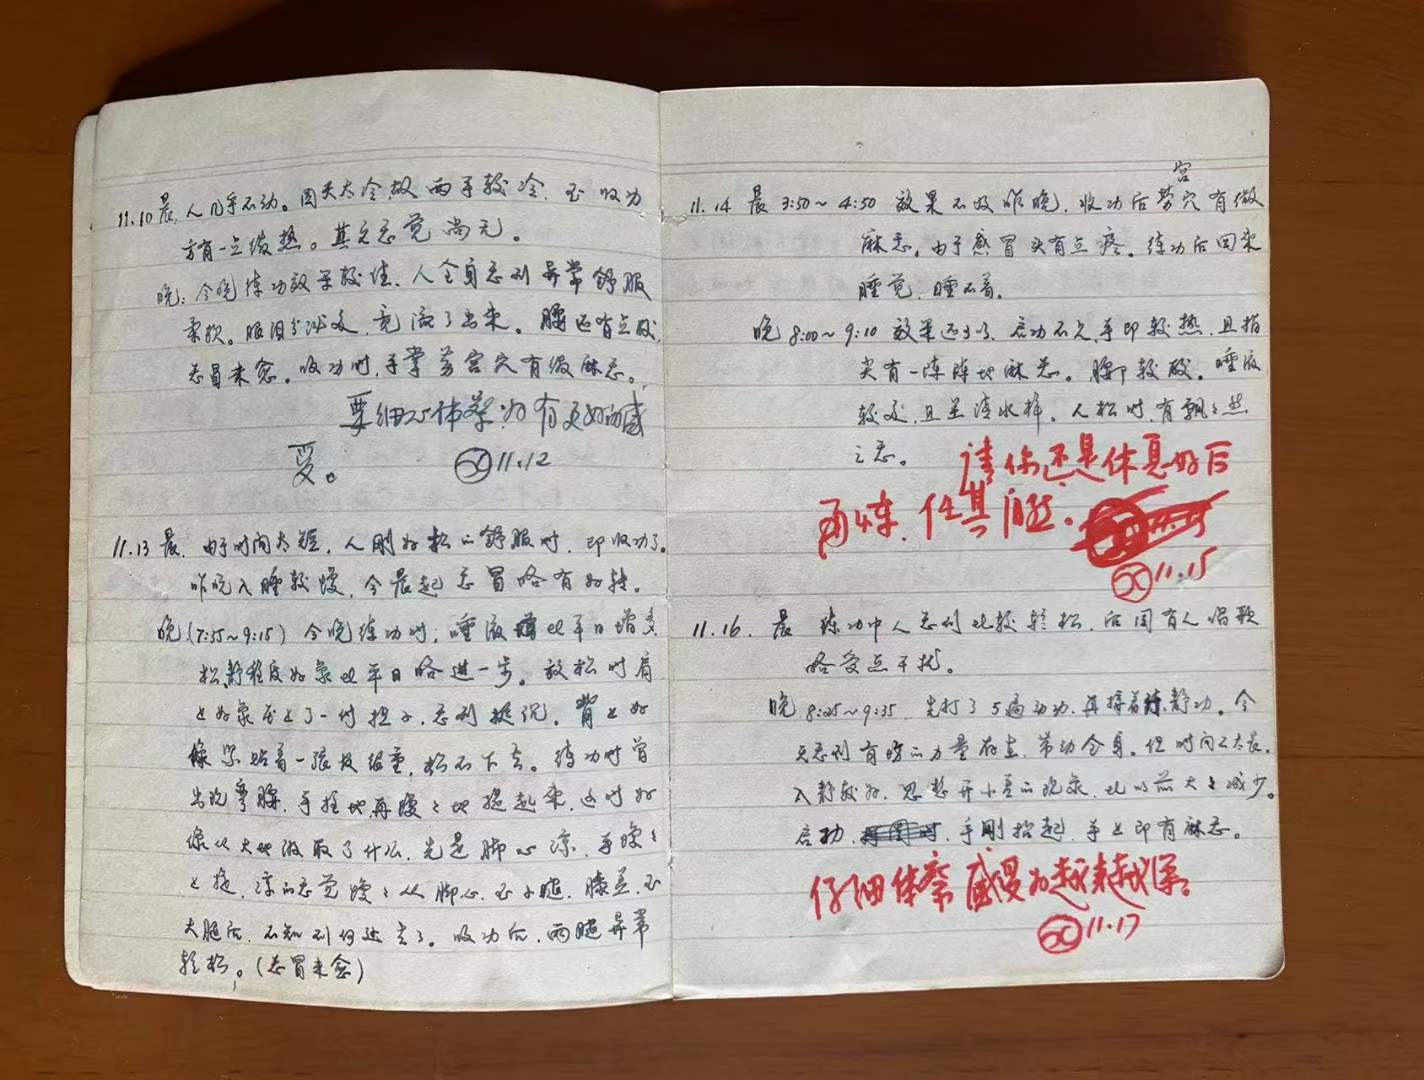 11.10 晨. 人几乎不动。因天太冷,故两手较冷,至收功
方有一点缓热。其它感觉尚无。
晚: 今晚练功效果较佳. 人全身感到异常舒服
柔软。眼泪分泌多,竟流了出来。腰还有点酸,
感冒未愈。收功时,手掌劳宫穴有缓麻感。
要细心体察,好有更好的感
受。 11.12
11.13 晨. 由于时间太短,人刚好松的舒服时,即收功了。
昨晚入睡较慢,今晨起感冒略有好转。
晚(7:55~9:15) 今晚练功时,唾液比平日增多
松静程度好象比平日略进一步。放松时肩
上好象压上了一付担子,感到挺沉,背上好
像贴着一张,松不下去。练功时曾
出现弯腰,手拄地再慢慢地提起来,这时好
像从大地吸取了什么,先是脚心凉,手慢慢
上提,凉的感觉慢慢从脚心至小腿,膝盖,至
大腿后,不知到何处去了。收功后,两腿异常
轻松。(感冒未愈)
宫
11.14 晨 3:50~4:50 效果不及昨晚,收功后劳穴有微
麻感。由于感冒头有点疼。练功后回来
睡觉,睡不着。
晚 8:00~9:10 效果还可以,启功不久,手即较热,且指
尖有一阵阵地麻感。腰部较酸。唾液
较多,且呈清水样。人松时,有飘飘然
之感。
请你还是休息好后
再炼. 任其自然.
11.15
11.16. 晨 练功中人感到比较轻松,后因有人唱歌
略受点干扰。
晚 8:25~9:35 先打了5遍动功,再接着练静功。今
天感到有的力量存在,带动全身。但时间不太长.
入静较好,思想开小差的现象,比以前大大减少。
启功,手刚抬起,手上即有麻感。
仔细体察 感受好越来越深
11.17